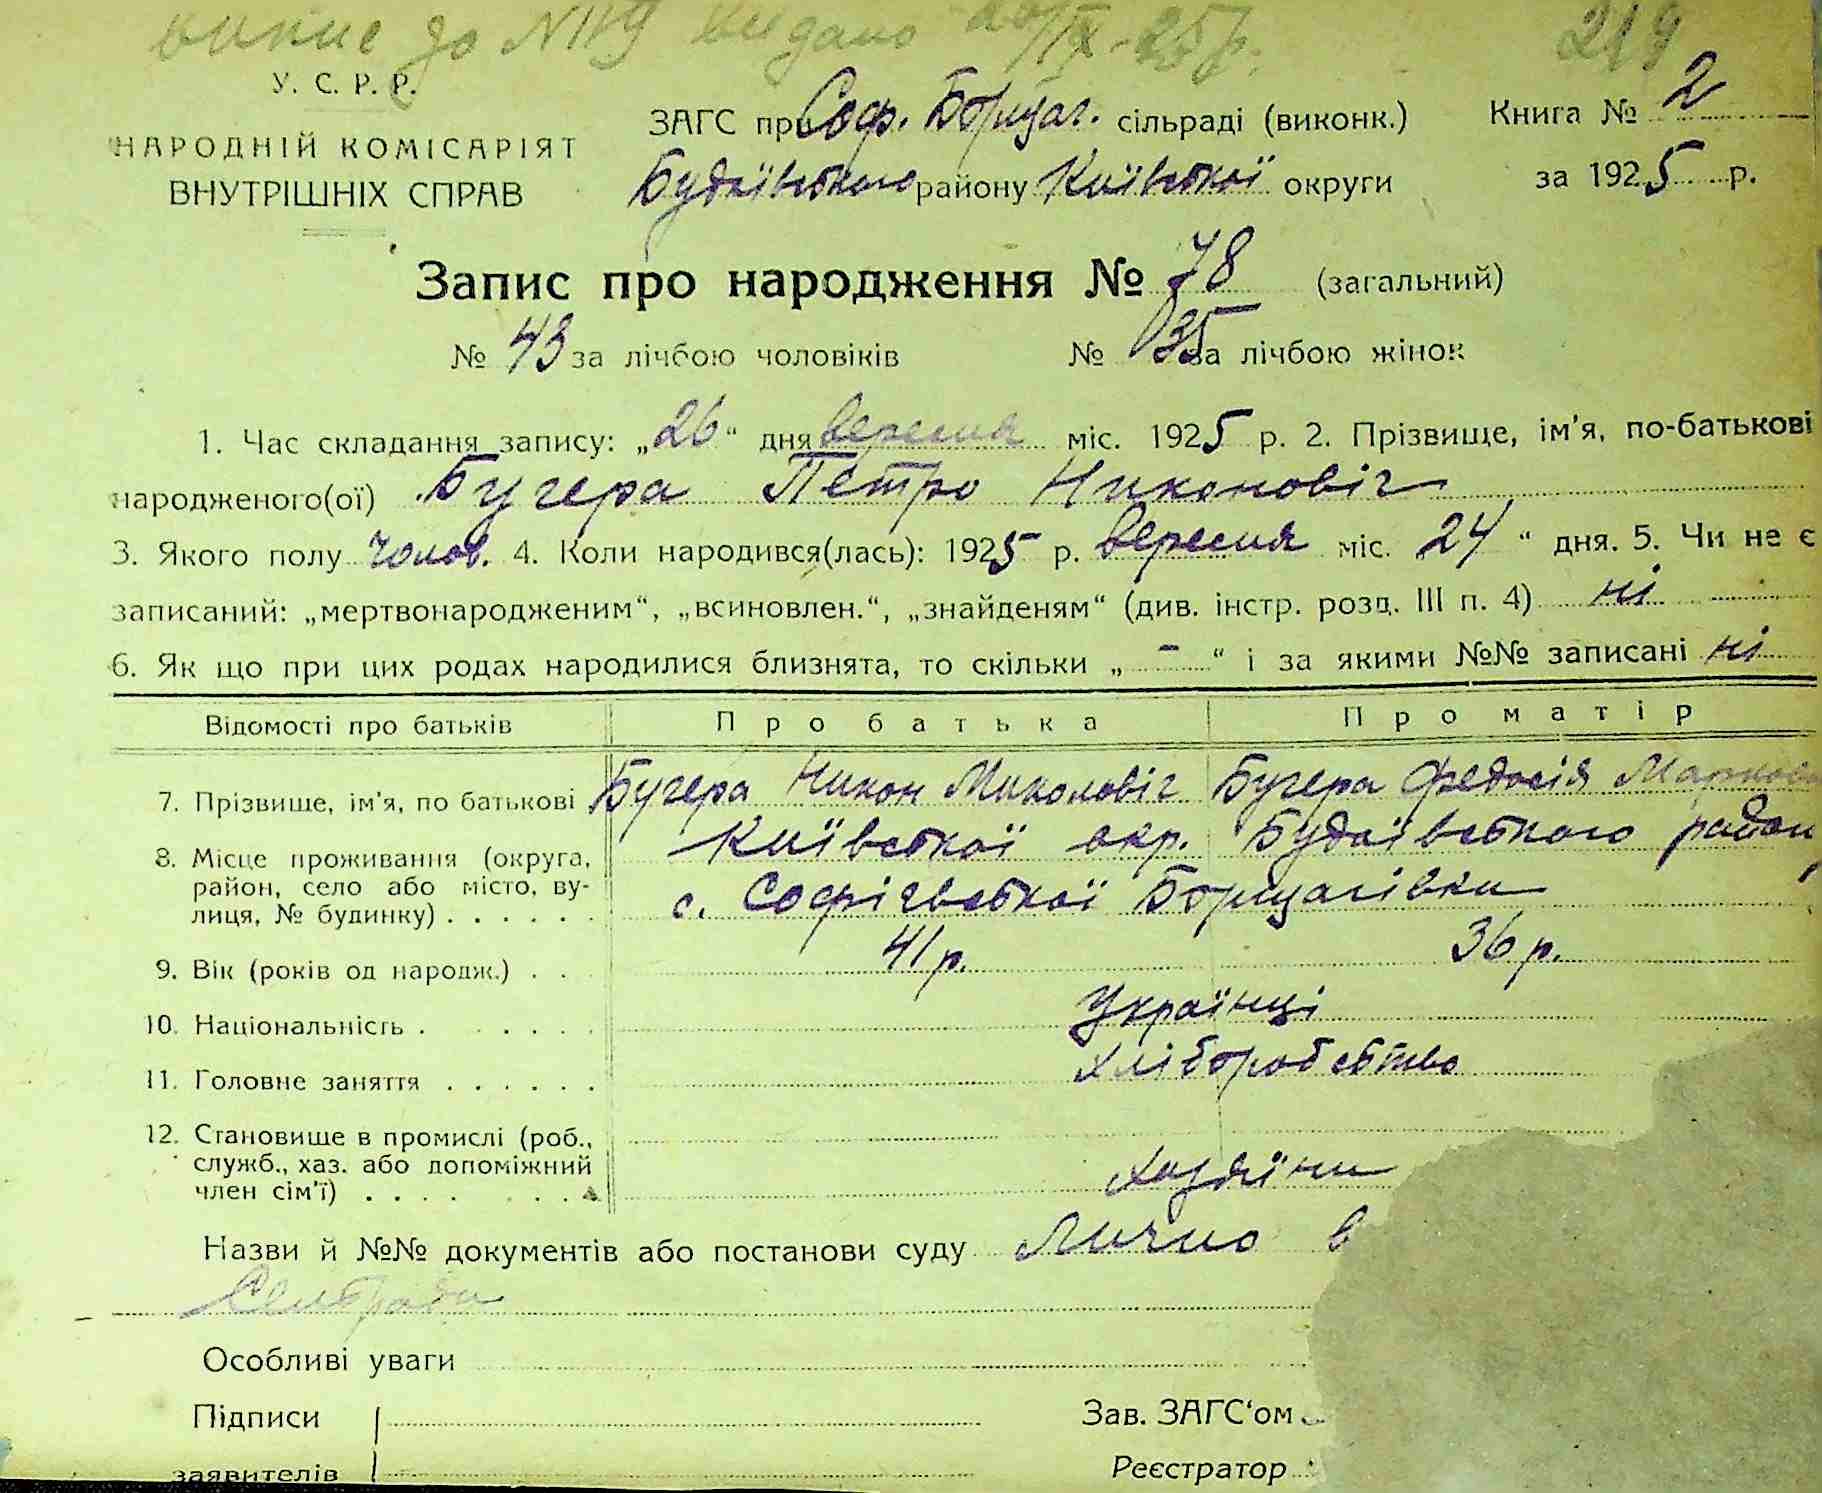 випис до №119 видано 26/IX-25 р. 219
У. С. Р. Р.
НАРОДНІЙ КОМІСАРІЯТ
ВНУТРІШНІХ СПРАВ
ЗАГС при Соф. Борщаг. сільраді (виконк.)
Будаївського району Київської округи
Книга № 2
за 1925 р.
Запис про народження № 78 (загальний)
№ 43 за лічбою чоловіків № 35 за лічбою жінок
1. Час складання запису: „26“ дня вересня міс. 1925 р. 2. Прізвище, ім'я, по-батькові
народженого(ої) Бугера Петро Никонович
3. Якого полу чолов. 4. Коли народився(лась): 1925 р. вересня міс. 24 “ дня. 5. Чи не є
записаний: „мертвонародженим“, „всиновлен.“, „знайденям“ (див. інстр. розд. III п. 4) ні
6. Як що при цих родах народилися близнята, то скільки „ - “ і за якими №№ записані ні
Відомості про батьків Про батька Про матір
7. Прізвише, ім'я, по батькові Бугера Никон Миколович Бугера Федосія
8. Місце проживання (округа, Київської окр. Будаївського район
район, село або місто, ву-
лиця, № будинку) . . . . . . с. Софіївської Борщагівки
9. Вік (років од народж.) . . 41 р. 36 р.
10. Національність . . . . . . Українці
11. Головне заняття . . . . . . хліборобство
12. Становище в промислі (роб.,
служб., хаз. або допоміжний
член сім'ї) . . . . . . . . хазяїни
Назви й №№ документів або постанови суду Лично в
Сельради
Особливі уваги
Підписи Зав. ЗАГС'ом
заявителів Реєстратор